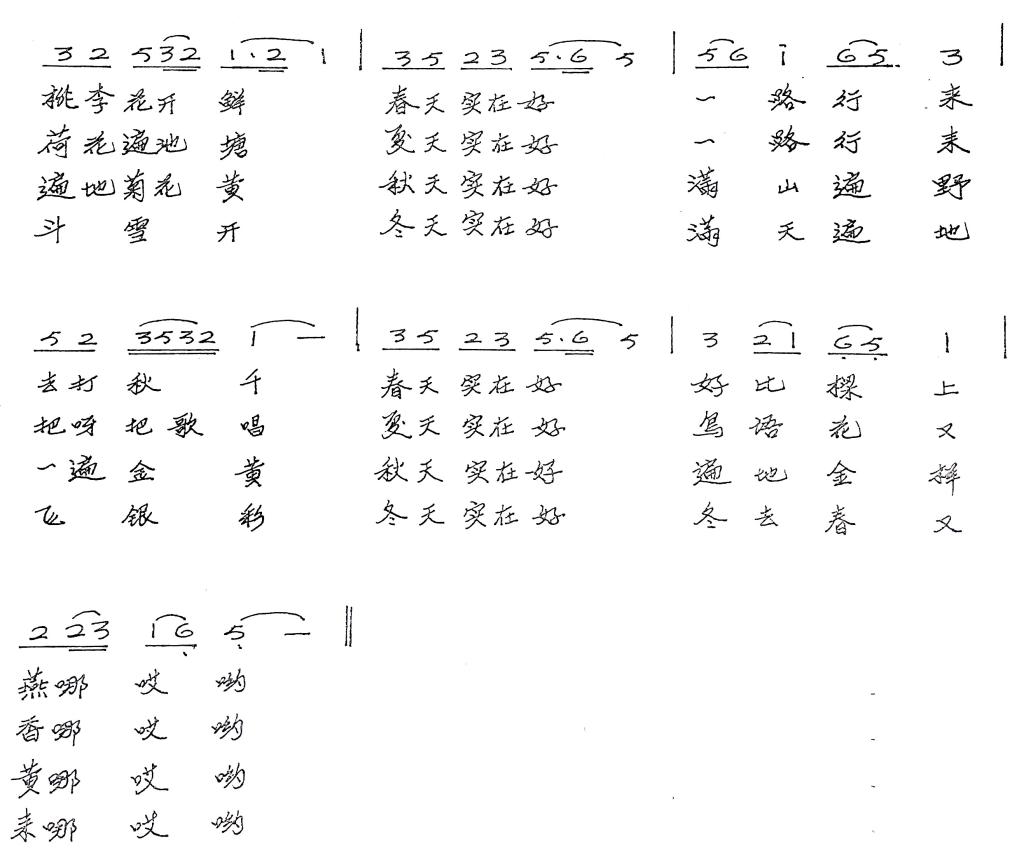 3 2 532 1·2 1 | 35 23 5·6 5 | 56 i 65 3 |
桃李花开鲜 春天实在好 一路行来
荷花遍池塘 夏天实在好 一路行来
遍地菊花黄 秋天实在好 满山遍野
斗雪开 冬天实在好 满天遍地
52 3532 1 — | 35 23 5·6 5 | 3 21 65 1 |
去打秋千 春天实在好 好比樑上
把呀把歌唱 夏天实在好 鸟语花又
一遍金黄 秋天实在好 遍地金拌
飞银彩 冬天实在好 冬去春又
2 23 16 5 — ‖
燕哪哎哟
香哪哎哟
黄哪哎哟
来哪哎哟